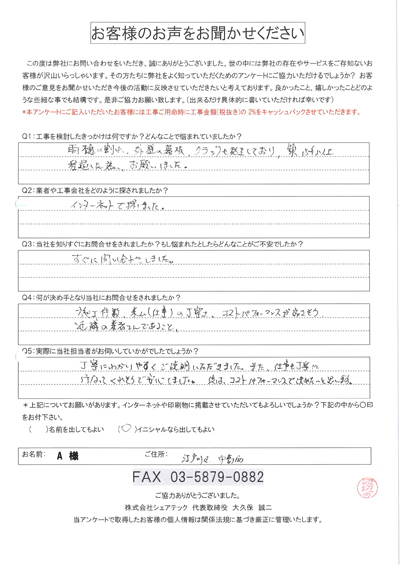 お客様のお声をお聞かせください
この度は弊社にお問い合わせをいただき、誠にありがとうございました。世の中には弊社の存在やサービスをご存知ないお
客様が沢山いらっしゃいます。その方たちに弊社をよく知っていただくためのアンケートにご協力いただけるでしょうか？ お客
様のご意見をお聞かせいただき今後の活動に反映させていただきたいと考えております。良かったこと、嬉しかったことどのよ
うな些細な事でも結構です。是非ご協力お願い致します。（出来るだけ具体的に書いていただければ幸いです）
*本アンケートにご記入いただいたお客様には工事ご用命時に工事金額(税抜き)の2%をキャッシュバックさせていただきます。
Q1：工事を検討したきっかけは何ですか？どんなことで悩まれていましたか？
雨樋の割れ、クラックも発生しており、築
お願いしました。
Q2：業者や工事会社をどのように探されましたか？
インターネットで探しました。
Q3：当社を知りすぐにお問合せをされましたか？もし悩まれたとしたらどんなことがご不安でしたか？
すぐに問い合わせしました。
Q4：何が決め手となり当社にお問合せをされましたか？
施工件数、コストパフォーマンスが
近隣の業者さんであること。
Q5：実際に当社担当者がお伺いしていかがでしたでしょうか？
丁寧にわかりやすくご説明いただきました。また、仕事も丁寧に
行なってくれそうで コストパフォーマンスで決めたいと思います。
＊上記についてお願いがあります。インターネットや印刷物に掲載させていただいてもよろしいでしょうか？下記の中から〇印
をお付下さい。
（　）名前を出してもよい （〇）イニシャルなら出してもよい
お名前： A 様 江戸川区
FAX 03-5879-0882
ご協力ありがとうございました。
株式会社シェアテック 代表取締役 大久保 誠二
当アンケートで取得したお客様の個人情報は関係法規に基づき厳正に管理いたします。